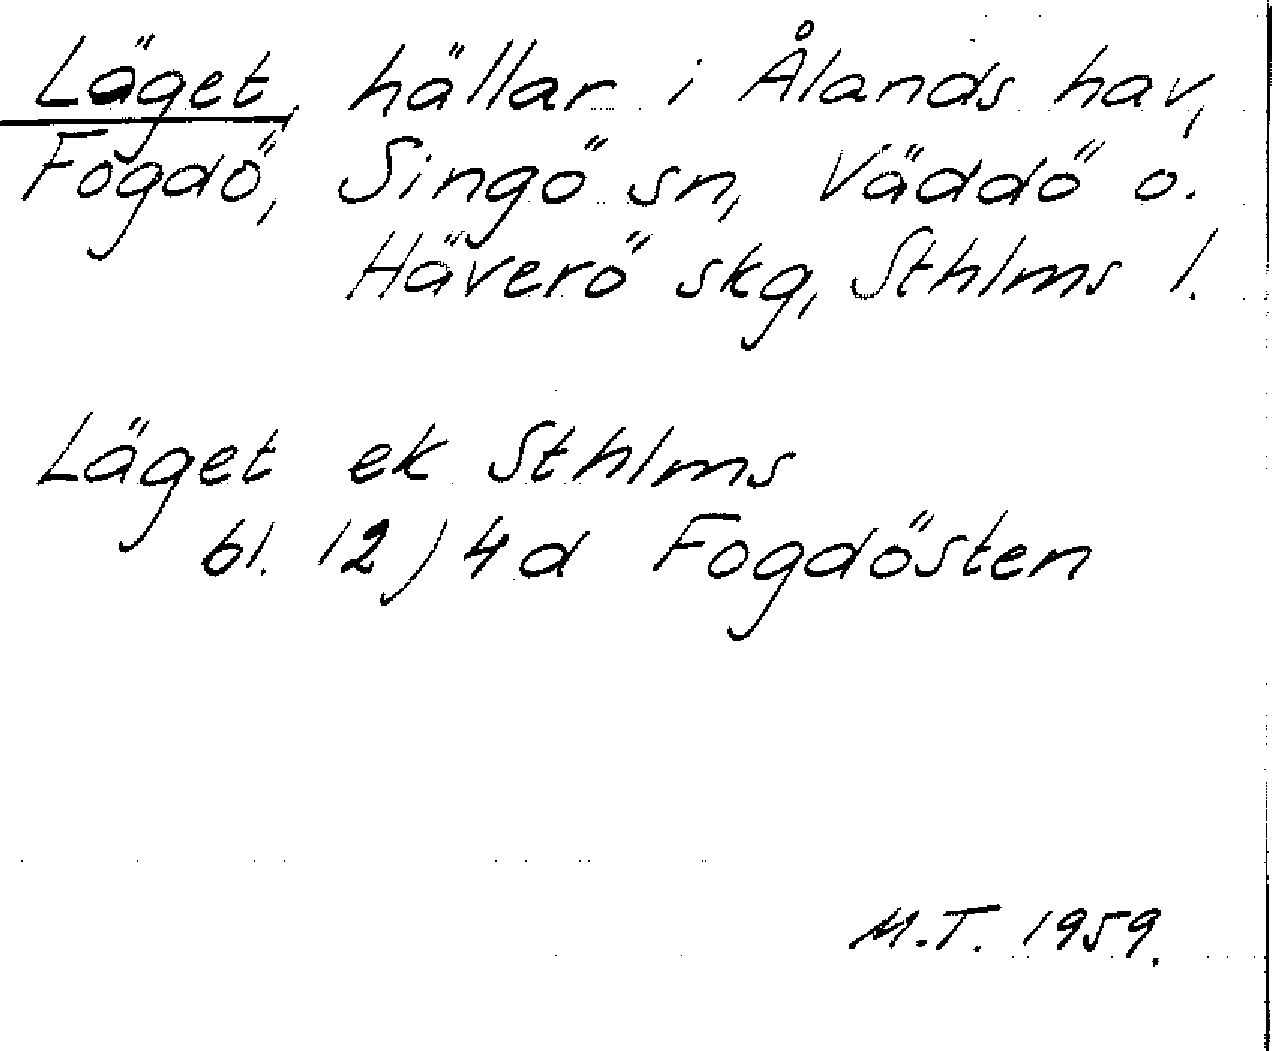 Läget, hällar i Ålands hav,
Fogdö, Singö sn, Väddö o.
Häverö skg, Sthlms l.
Läget ek Sthlms
bl. 12) 4d Fogdösten
M.T. 1959.